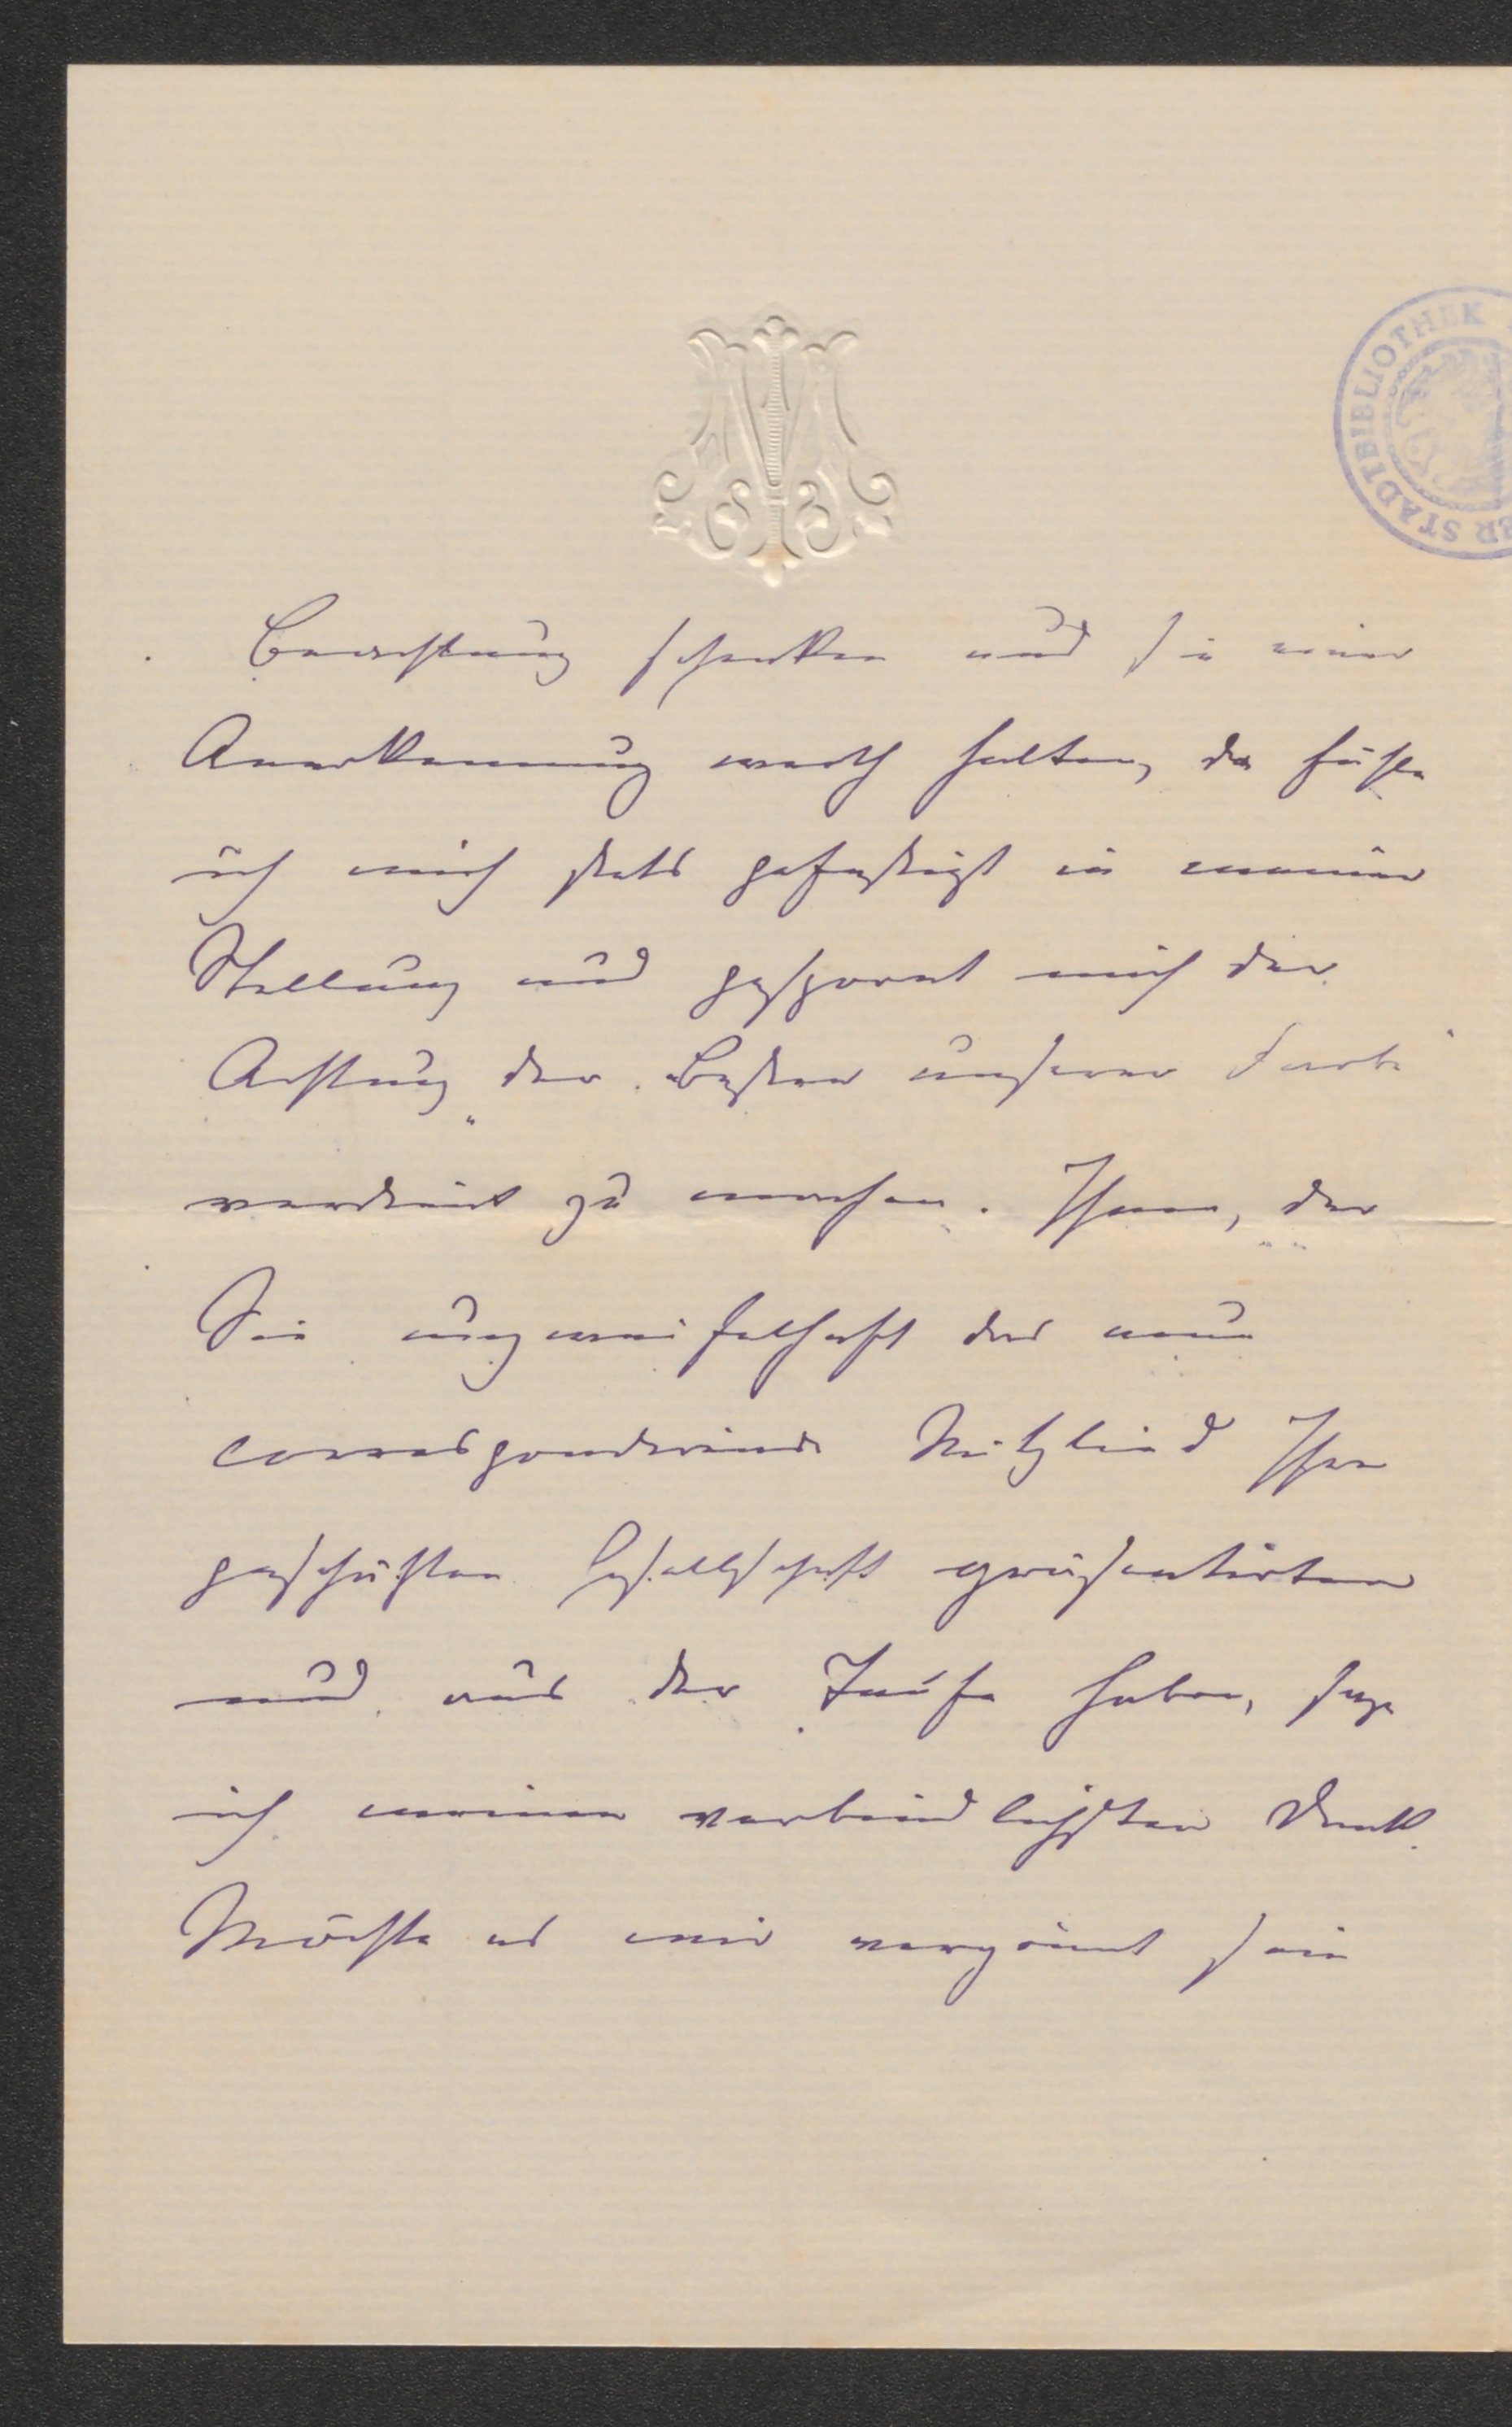 STADTBIBLIOTHEK
Beachtung schenken und sie einer
Anerkennung werth halten, da fühle
ich mich stets gefestigt in meiner
Stellung und gespornt mich der
Achtung der Besten unserer
verdient zu machen. Ihnen, der
Sie unzweifelhaft das neue
correspondirende Mitglied Ihrer
geschätzten Gesellschaft präsentirten
und aus der Taufe haben, sage
ich meinen verbindlichsten Dank.
Möchte es mir vergönnt sein